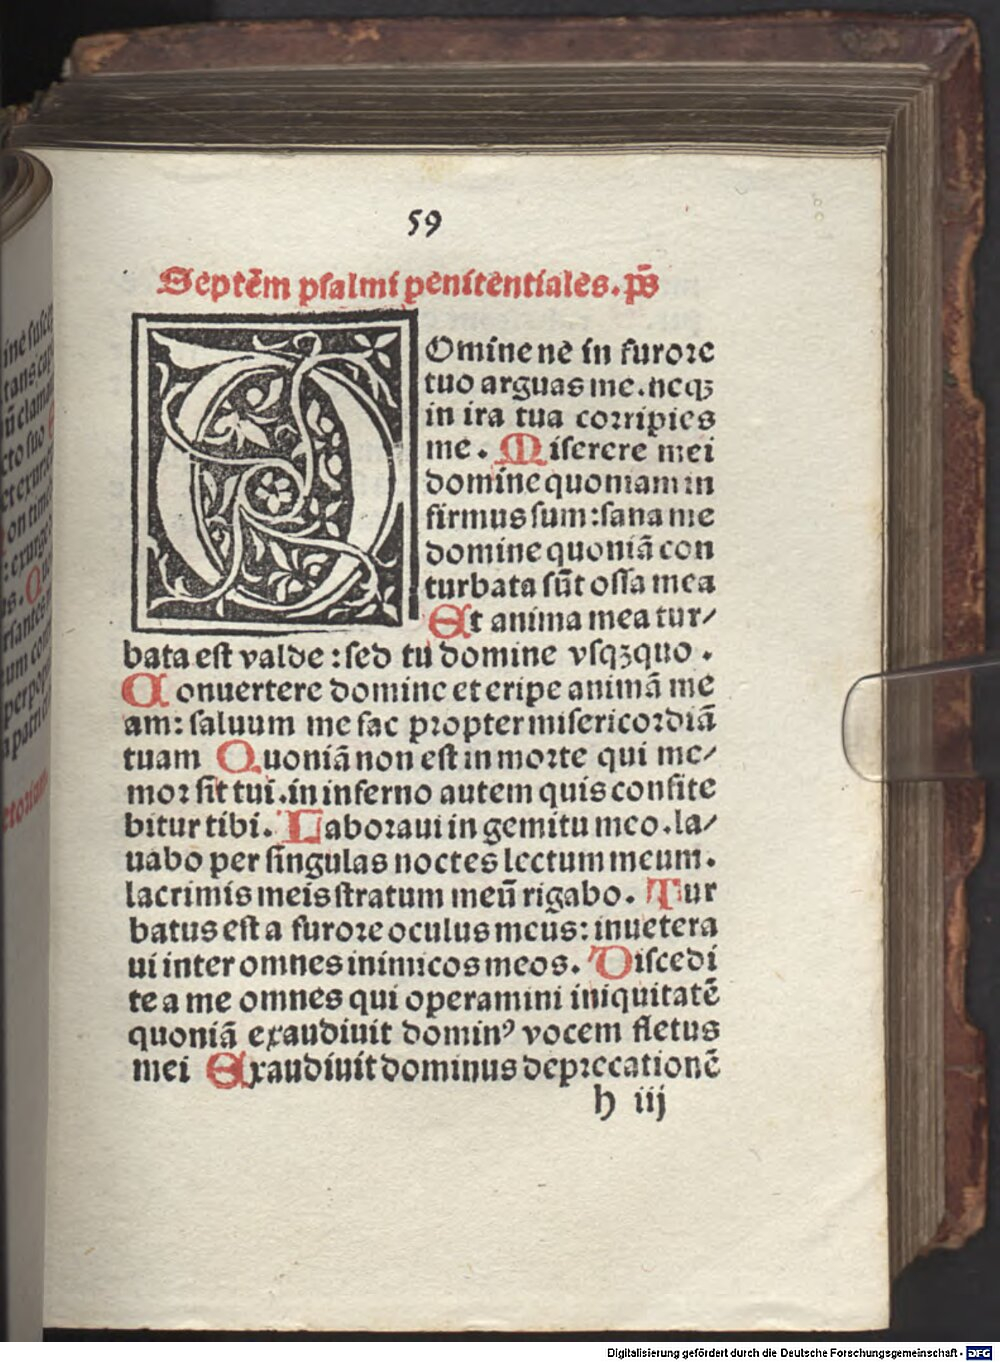 59
Septēm psalmi penitentiales. ps̄
DOmine ne in furore
tuo arguas me. neqꝫ
in ira tua corripies
me. Miserere mei
domine quoniam in
firmus sum: sana me
domine quoniā con
turbata sūt ossa mea
Et anima mea tur/
bata est valde: sed tu domine vsqꝫquo.
Conuertere domine et eripe animā me
am: saluum me fac propter misericordiā
tuam Quoniā non est in morte qui me/
mor sit tui. in inferno autem quis confite
bitur tibi. Laboraui in gemitu meo. la/
uabo per singulas noctes lectum meum.
lacrimis meis stratum meū rigabo. Tur
batus est a furore oculus meus: inuetera
ui inter omnes inimicos meos. Discedi
te a me omnes qui operamini iniquitatē
quoniā exaudiuit dominꝰ vocem fletus
mei Exaudiuit dominus deprecationē
h iij
Digitalisierung gefördert durch die Deutsche Forschungsgemeinschaft - DFG